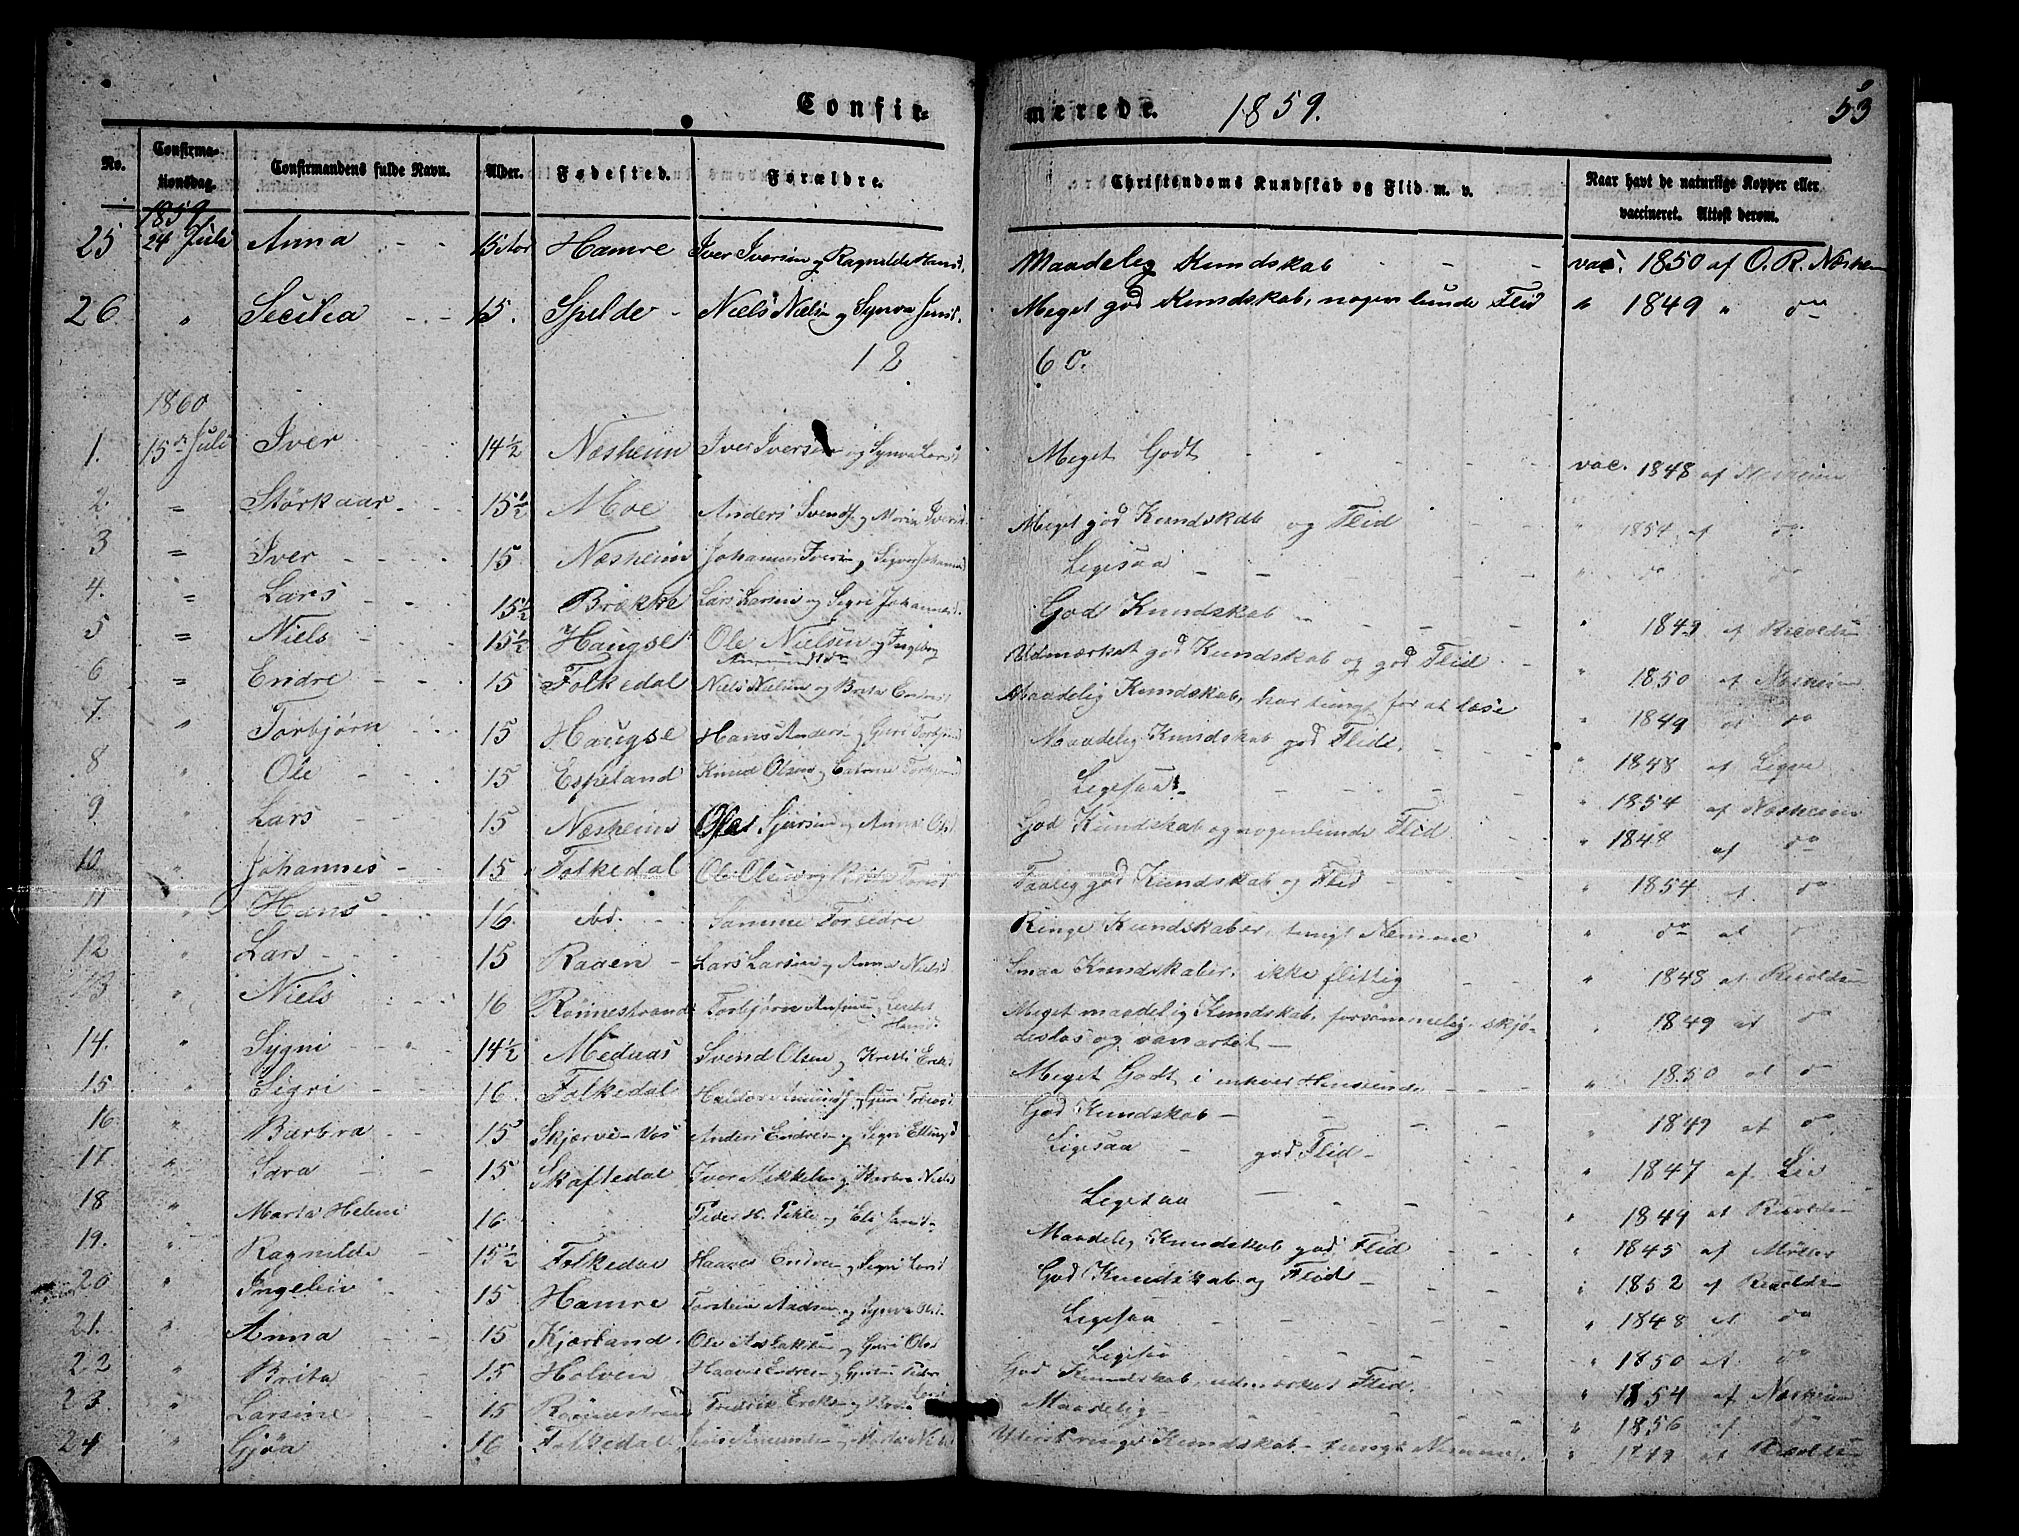 Confir- merede. 1859. 53
No. Confirmationsdag. Confirmandens fulde Navn. Alder. Fødested. Forældre. Christendoms Kundskab og Flid m. v. Naar havt de naturlige Kopper eller vaccineret. Attest derom.
1859
25 24 Juli Anna 15 Hamre Iver Iversen og Ragnilde Hansd. Maadelig Kundskab vac. 1850 af O. R. Næsheim
26 " Secilia 15. Spilde Niels Nielsen og Synva Jensd. Meget god Kundskab, nogenlunde Flid " 1849 " do
18 60.
1860
1. 15de Juli Iver 14½ Næsheim Iver Iversen og Synva Larsd Meget Godt vac. 1848 af Næsheim
2. " Störkaar 15½ Moe Anders Svends. og Iversd. Meget god Kundskab og Flid " 1854 af do
3 " Iver 15 Næsheim Johannes Iversen og Johannesd Ligesaa " do do
4. " Lars 15½ Brække Lars Larsen og Segri Johannesd. God Kundskab " 1849 af
5 " Niels 15½ Haugse Ole Nielsen og Ingeborg Amundsd. Udmærket god Kundskab og god Flid " 1850 af Næsheim
6 " Endre 15 Folkedal Niels Nielsen og Brita Endresd Maadelig Kundskab, har tungt for at læse " 1849 af do
7. " Torbjørn 15 Haugse Hans Anders. og Guri Torbjørnsd Maadelig Kundskab god Flid. " 1848 af
8 " Ole 15 Espeland Knud Olsen og Torbjørnsd Ligesaa " 1854 af Næsheim
9 " Lars 15 Næsheim Ole Sjursen og Anna Olsd God Kundskab og nogenlunde Flid " 1848 af do
10 " Johannes 15 Folkedal Ole Olsen og Brita Taalig god Kundskab og Flid " 1854 af do
11 " Hans 16 do. Samme Forældre Ringe Kundskaber, tungt Nemme " do af do
12 " Lars 15 Raaen Lars Larsen og Anna Nielsd Smaa Kundskaber, ikke flittig " 1848 af
13 " Niels 16 Rönnestrand Torbjørn og Hansd. Meget maadelig Kundskab, forsömmelig, skjö-
desløs og vanartet " 1849 af do
14. " Sygni 14½ Medaas Svend Olsen og Kristi Eriksd Meget Godt i enhver Henseende " 1850 af do
15 " Sigri 16. Folkedal Haldor Amunds. og Guri God Kundskab " 1849 af do
16 " Barbra 15 Skjerve-Vos Anders Endresen og Segri Ellingsd Ligesaa god Flid " 1847 af Lie
17 " Sara 15 Skaftedal Iver Mikkelsen og Barbra Nielsd Ligesaa " 1849 af
18 " Marta Helene 16 Peder H. og Eli Maadelig Kundskab god Flid " 1845 af Möller
19. " Ragnilde 15½ Folkedal Haaver Endresen og Segri Larsd God Kundskab og Flid " 1852 af
20 " Ingelev 15 Hamre Torstein Aadsen og Synva Olsd. Ligesaa " 1848 af do
21. " Anna 15 Kjærland Ole Aslaksen og Guri Olsd Ligesaa " 1850 af do
22 " Brita 15 Holven Haaver Endresen og God Kundskab, udmærket Flid. " 1854 af Næsheim
23. " Larsine 15 Rønnestrand Fredrik Eriksen og Maadelig " 1856 af do
24 " Gjöa 16 Folkedal og Marta Nielsd Yderst ringe Kundskab tungt Nemme. " 1849 af